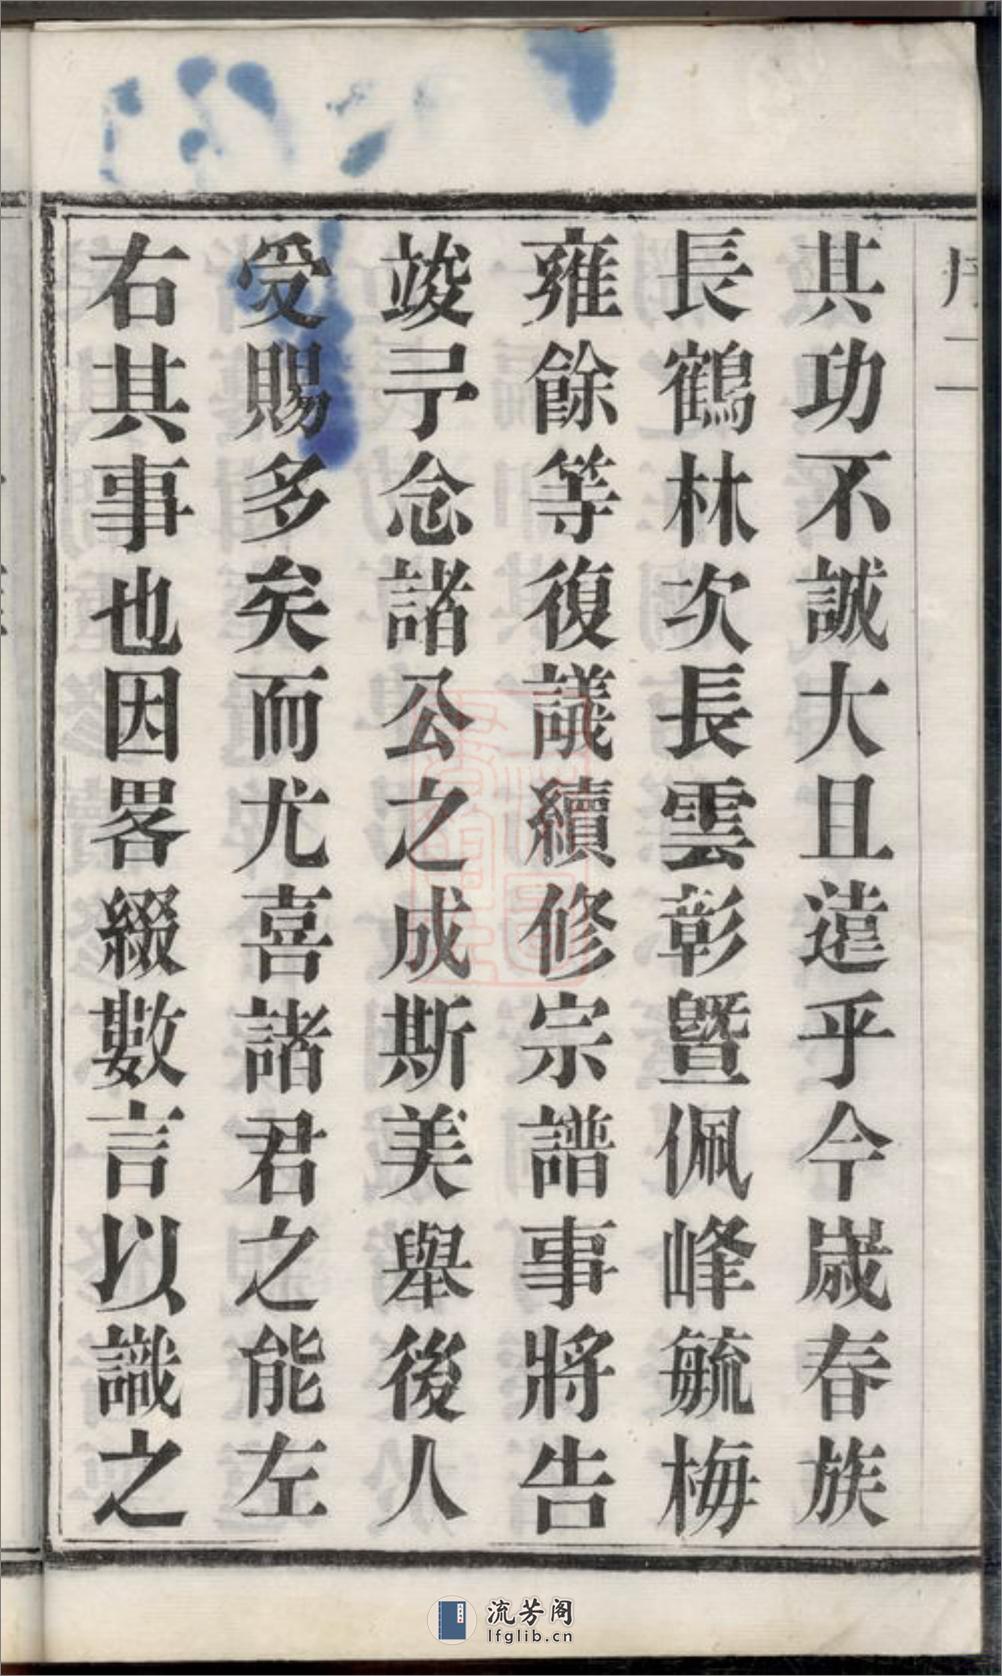 序二
其功不誠大且遠乎今歲春族
長鶴林次長雲彰暨佩峰毓梅
雍餘等復議續修宗譜事將告
竣予念諸公之成斯美舉後人
受賜多矣而尤喜諸君之能左
右其事也因畧綴數言以識之
流芳阁
lfglib.cn